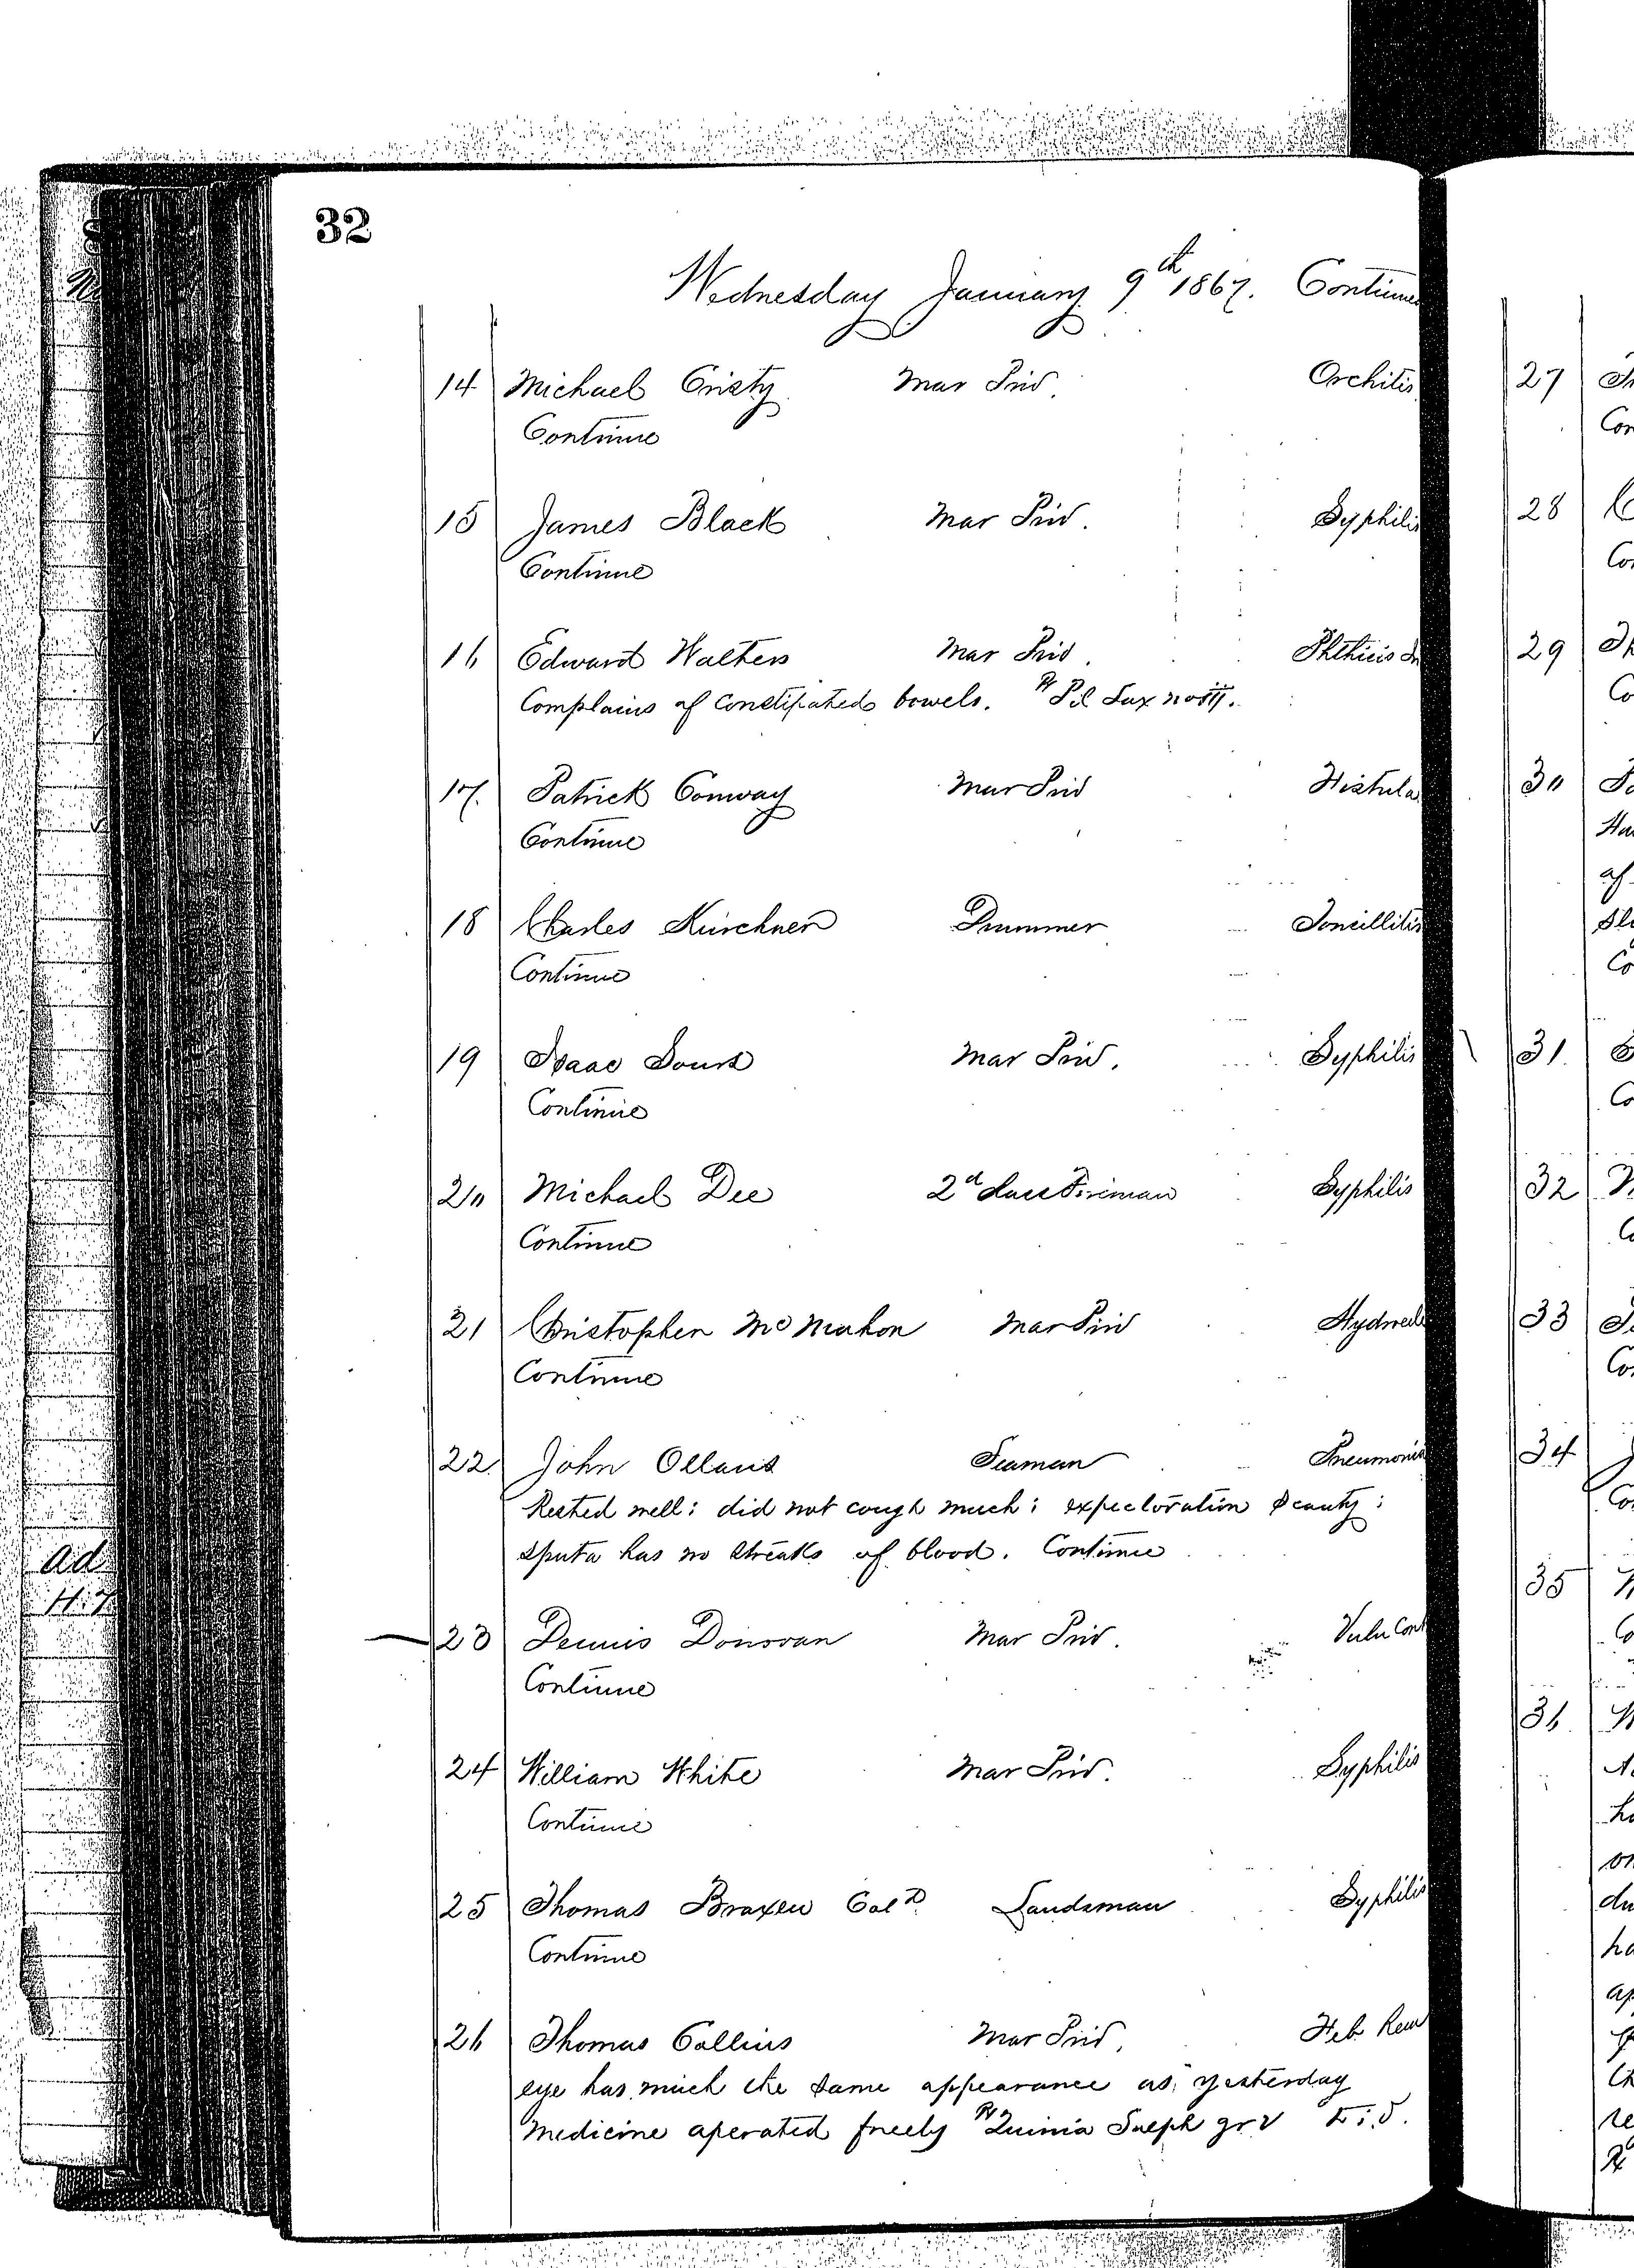 32
Wednesday January 9th 1867. Continued
14 Michael Cristy Mar Priv. Orchitis
Continue
15 James Black Mar Priv. Syphilis
Continue
16 Edward Walters Mar Priv. Phthicis
Complains of Constipated bowels. ℞ Pil Lax no ii.
17. Patrick Conway Mar Priv Fistula
Continue
18 Charles Kirschner Drummer Toncillitis
Continue
19 Isaac Mar Priv. Syphilis
Continue
20 Michael Dee 2d Class Fireman Syphilis
Continue
21 Christopher McMahon Mar Priv Hydrocele
Continue
22. John Ollaus Seaman Pneumonia
Rested well: did not cough much: expectoration scanty:
sputa has no streaks of blood. Continue
23 Dennis Donovan Mar Priv. Vuln Cont
Continue
24 William White Mar Priv. Syphilis
Continue
25 Thomas Braxen Cold Landsman Syphilis
Continue
26 Thomas Collins Mar Priv. Feb Rem
eye has much the same appearance as yesterday
Medicine operated freely ℞ Quinia Sulph gr v t.i.d.
27
28
29
30
31
32
33
34
35
36